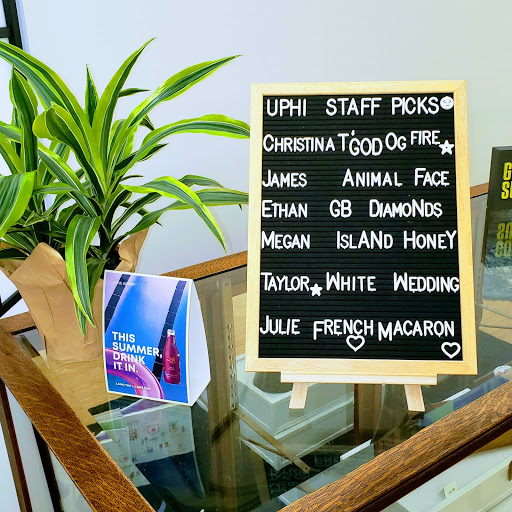 UPHI STAFF PICKS
CHRISTINA T'GOD OG FIRE
JAMES ANIMAL FACE
ETHAN GB DIAMONDS
MEGAN ISLAND HONEY
TAYLOR WHITE WEDDING
JULIE FRENCH MACARON
THIS
SUMMER,
DRINK
IT IN.